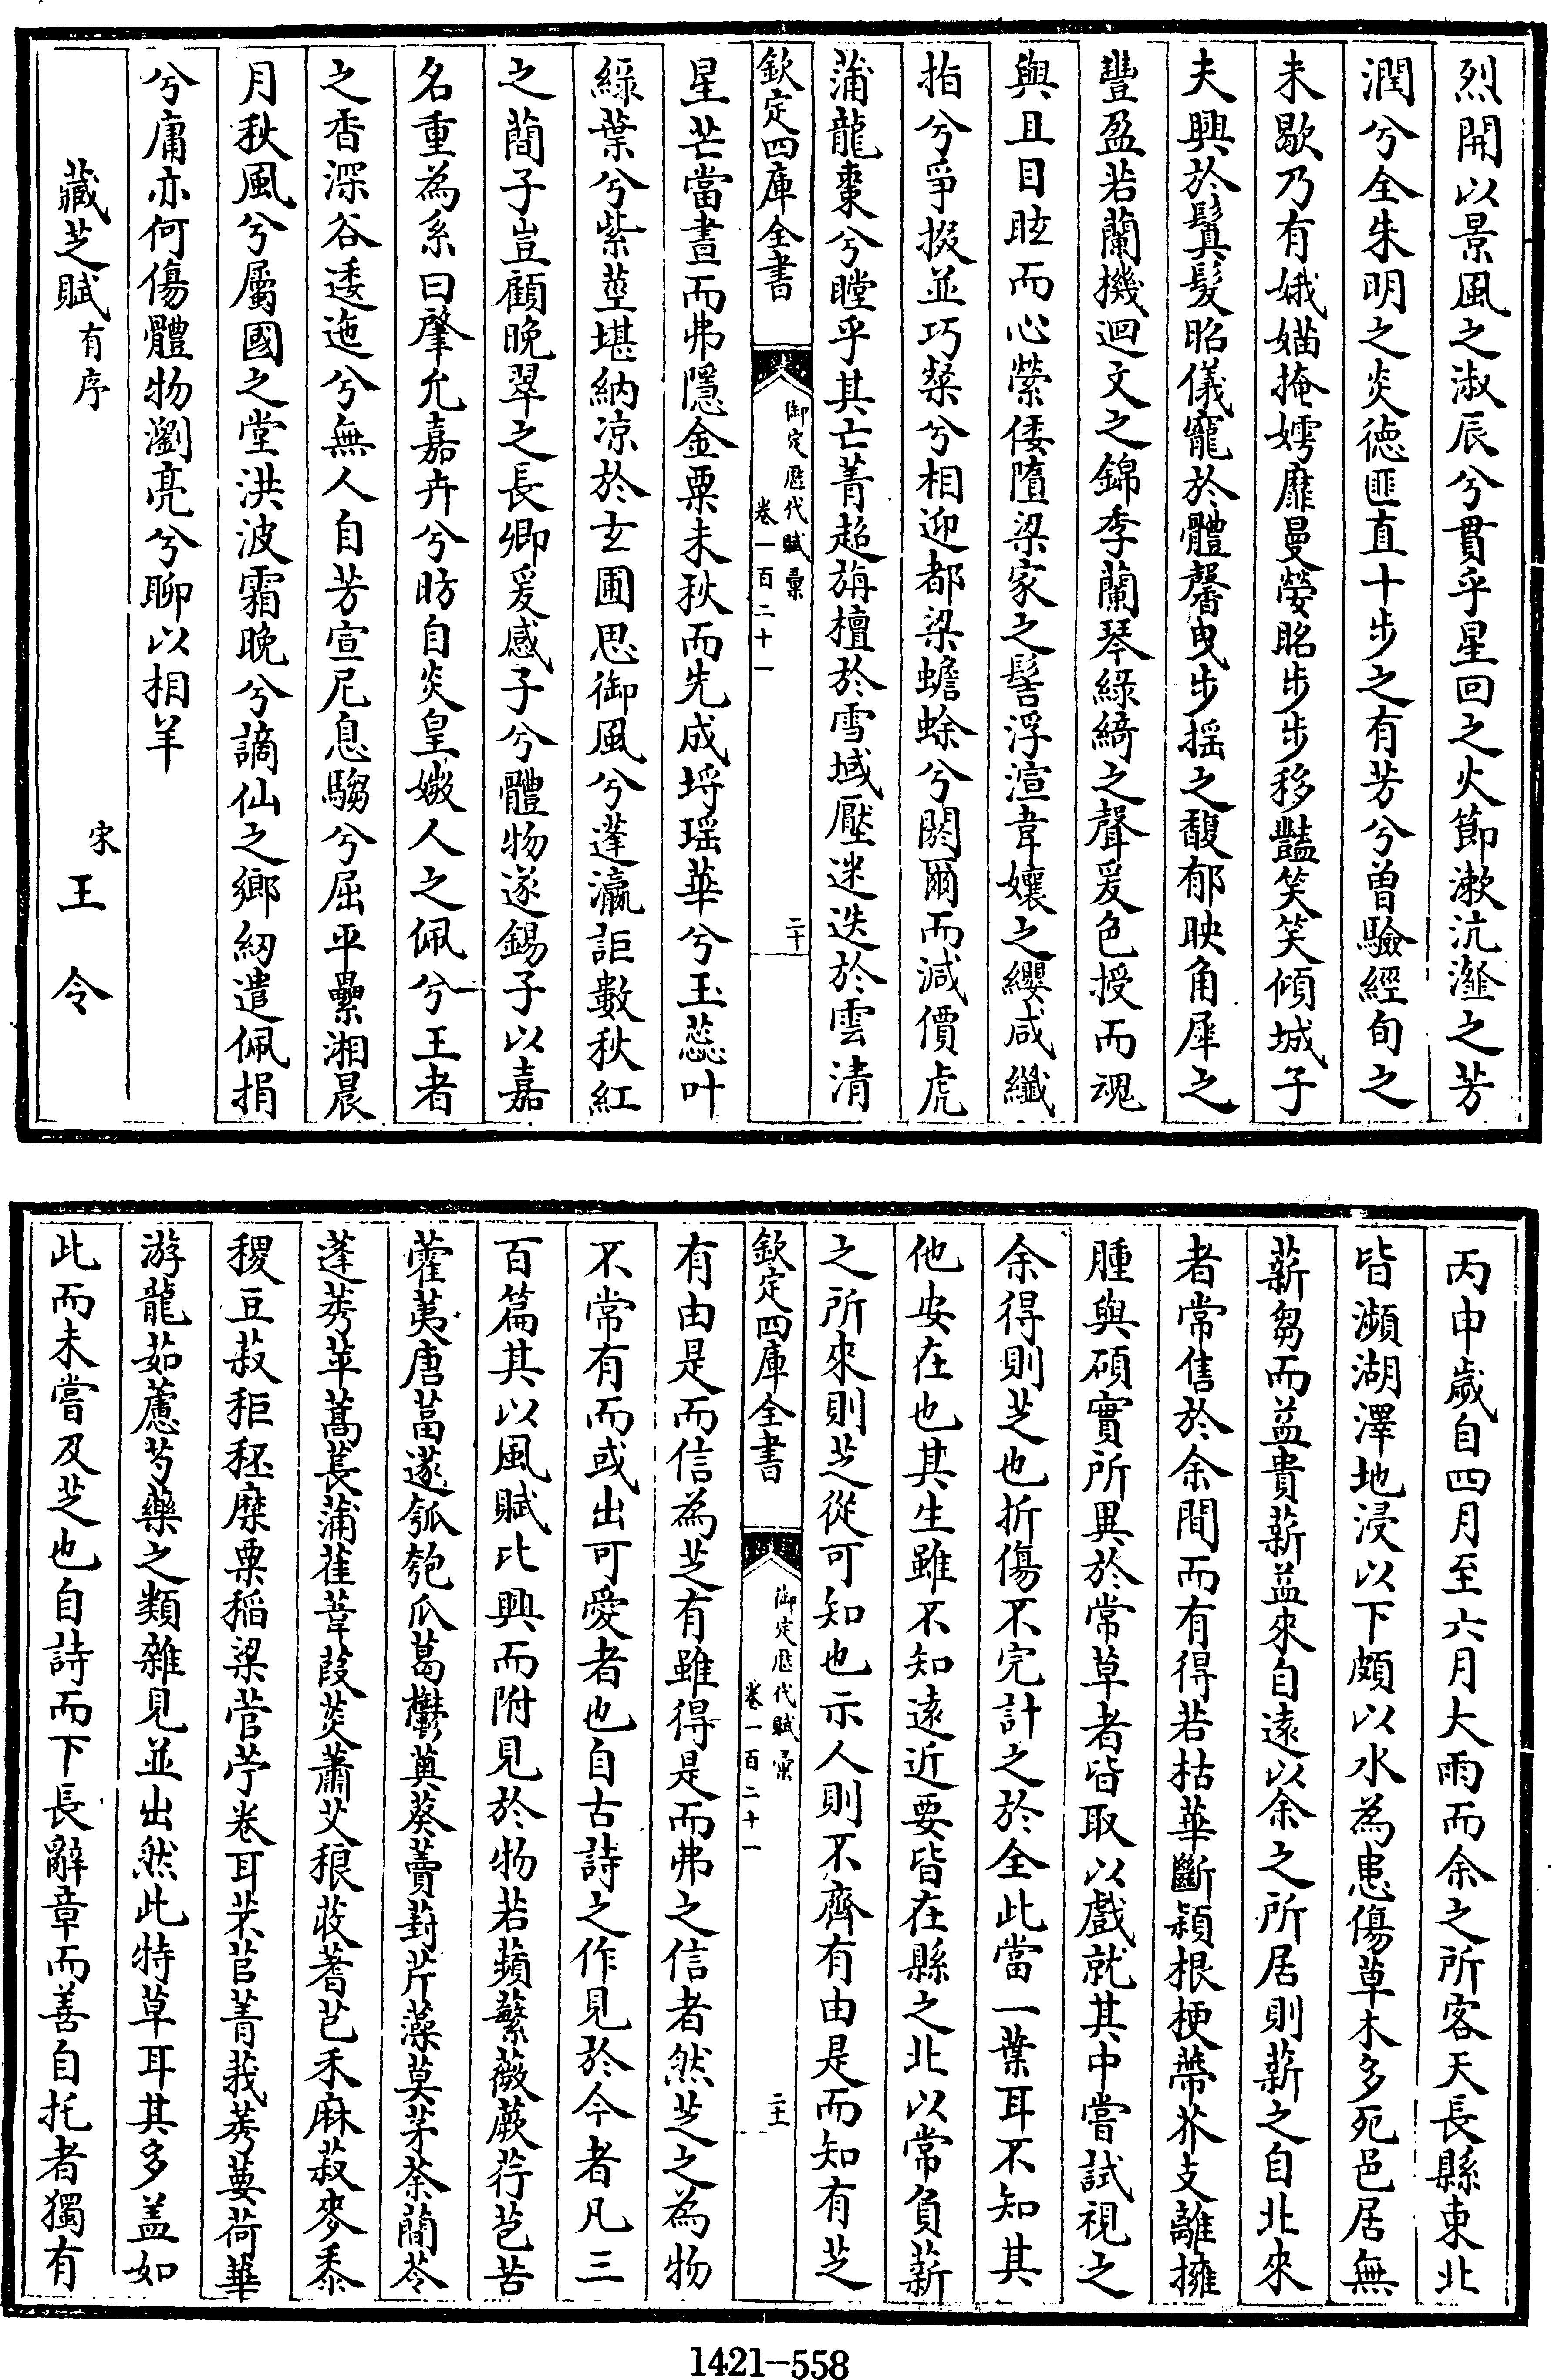 烈開以景風之淑辰兮貫乎星回之火節漱沆瀣之芳
潤兮全朱明之炎徳匪直十步之有芳兮曾驗經旬之
未歇乃有娥媌掩嫮靡曼嫈眳步步移豔笑笑傾城子
夫興於鬒髪昭儀寵於體馨曳步揺之馥郁映角犀之
豐盈若蘭機迴文之錦季蘭琴綠綺之聲爰色授而魂
與且目眩而心縈倭墮梁家之髻浮渲韋孃之纓咸纖
指兮爭掇並巧粲兮相迎都梁蟾蜍兮閟爾而減價虎
蒲龍棗兮瞠乎其亡菁超旃檀於雪域壓迷迭於雲清
欽定四庫全書
御定歴代賦彙
卷一百二十一
二十
星芒當晝而弗隱金粟未秋而先成埒瑶華兮玉蕊叶
綠葉兮紫莖堪納凉於玄圃思御風兮蓬瀛詎數秋紅
之蕑子豈顧晚翠之長卿爰感子兮體物遂錫子以嘉
名重為系曰肇允嘉卉兮昉自炎皇媺人之佩兮王者
之香深谷逶迤兮無人自芳宣尼息騶兮屈平纍湘晨
月秋風兮屬國之堂洪波霜晚兮謫仙之鄉紉遣佩捐
兮庸亦何傷體物瀏亮兮聊以相羊
藏芝賦有序
宋王令
丙申歲自四月至六月大雨而余之所客天長縣東北
皆瀕湖澤地浸以下頗以水為患傷草木多死邑居無
薪芻而益貴薪益來自遠以余之所居則薪之自北來
者常售於余間而有得若枯華斷頴根梗帶芥支離擁
腫與碩實所異於常草者皆取以戲就其中嘗試視之
余得則芝也折傷不完計之於全此當一葉耳不知其
他安在也其生雖不知遠近要皆在縣之北以常負薪
之所來則芝從可知也示人則不齊有由是而知有芝
欽定四庫全書
御定歴代賦彙
卷一百二十一
二十一
有由是而信為芝有雖得是而弗之信者然芝之為物
不常有而或出可愛者也自古詩之作見於今者凡三
百篇其以風賦比興而附見於物若蘋蘩薇蕨荇芭苦
藿荑唐葍蓫瓠匏瓜葛欎薁葵藚葑芹藻莫茅荼蕑苓
蓬莠苹蒿萇蒲萑葦葭菼蕭艾稂莪蓍芑禾麻菽麥黍
稷豆菽秬秠糜粟稻梁菅苧卷耳芣苢菁莪莠葽荷華
游龍茹藘芍藥之類雜見並出然此特草耳其多盖如
此而未嘗及芝也自詩而下長辭章而善自托者獨有
1421-558